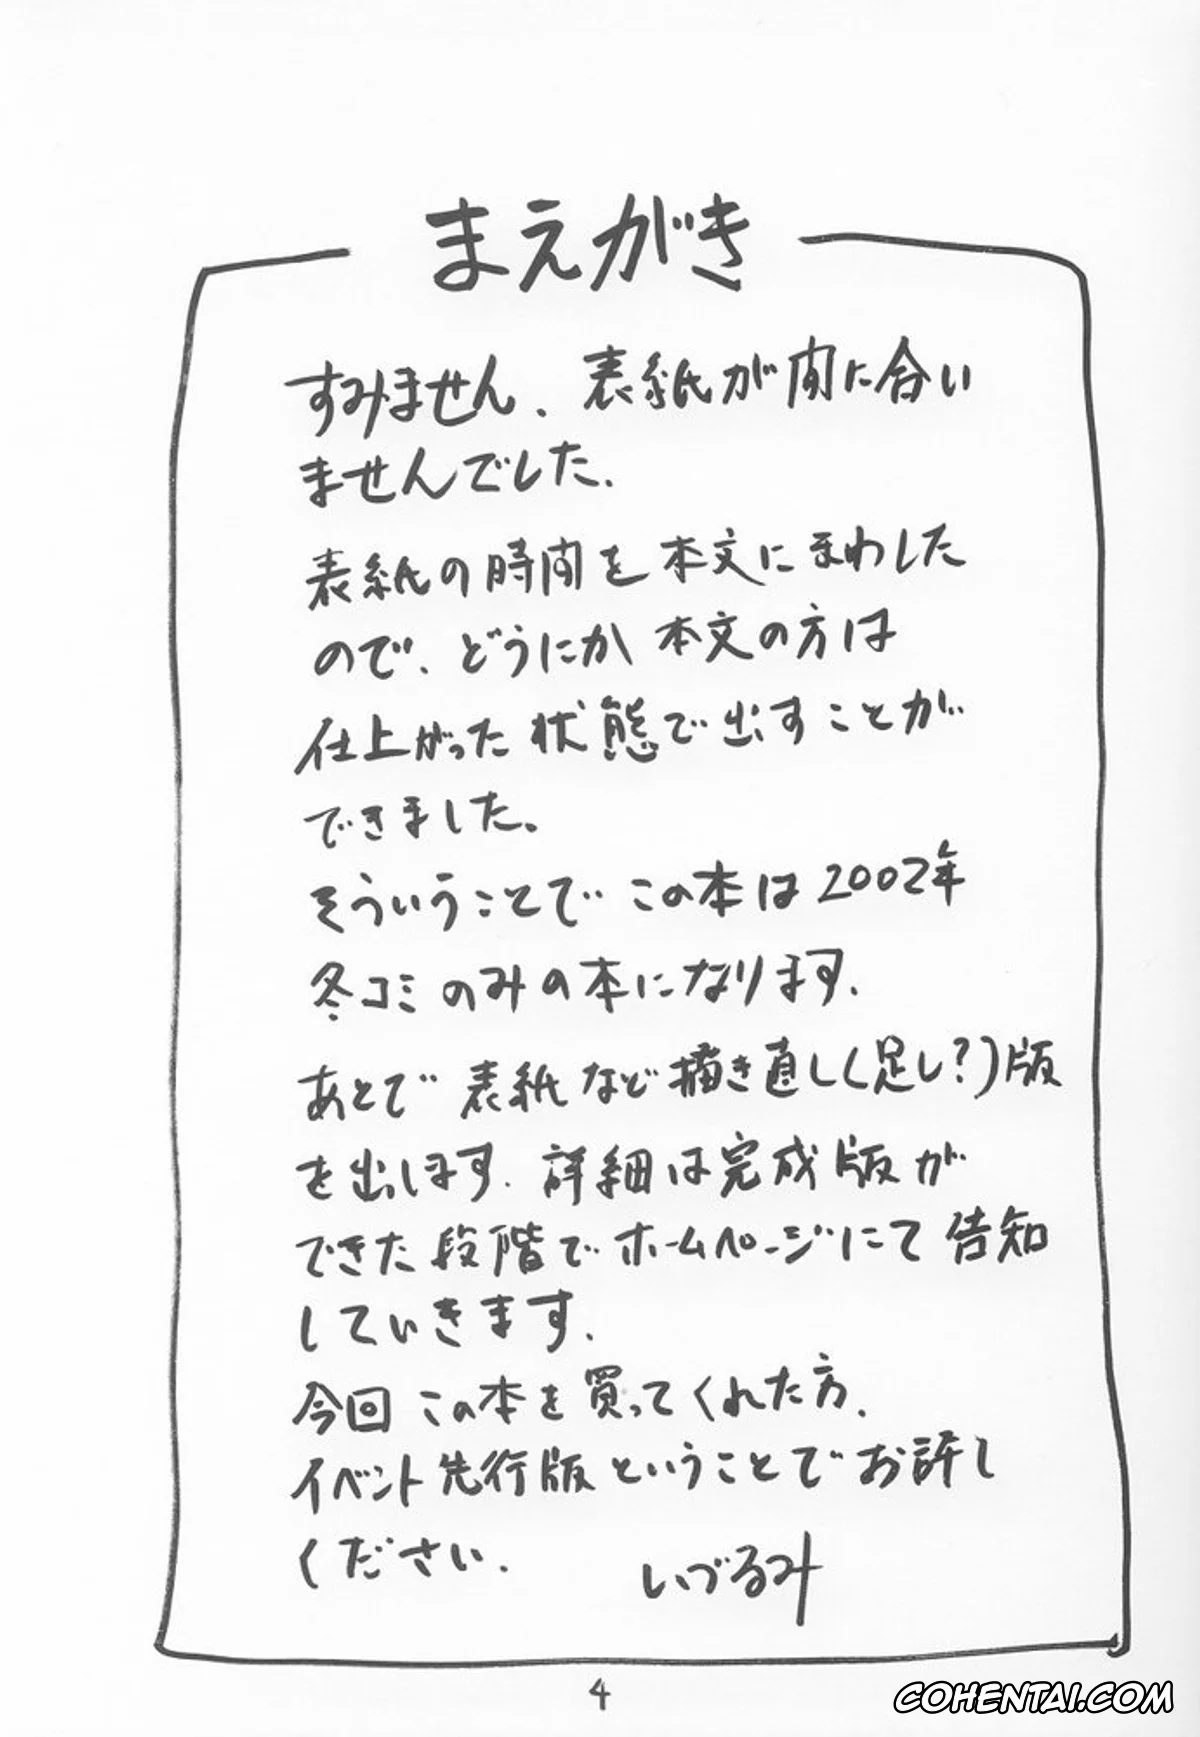 まえがき
すみません、表紙が間に合い
ませんでした.
表紙の時間を本文にまわした
ので、どうにか本文の方は
仕上がった状態で出すことが
できました。
そういうことでこの本は2002年
冬コミのみの本になります.
あとで表紙など描き直し(足し?)版
を出します. 詳細は完成版が
できた段階でホームページにて告知
していきます.
今回この本を買ってくれた方.
イベント先行版ということでお許し
ください.
いづるみ
4
COHENTAI.COM